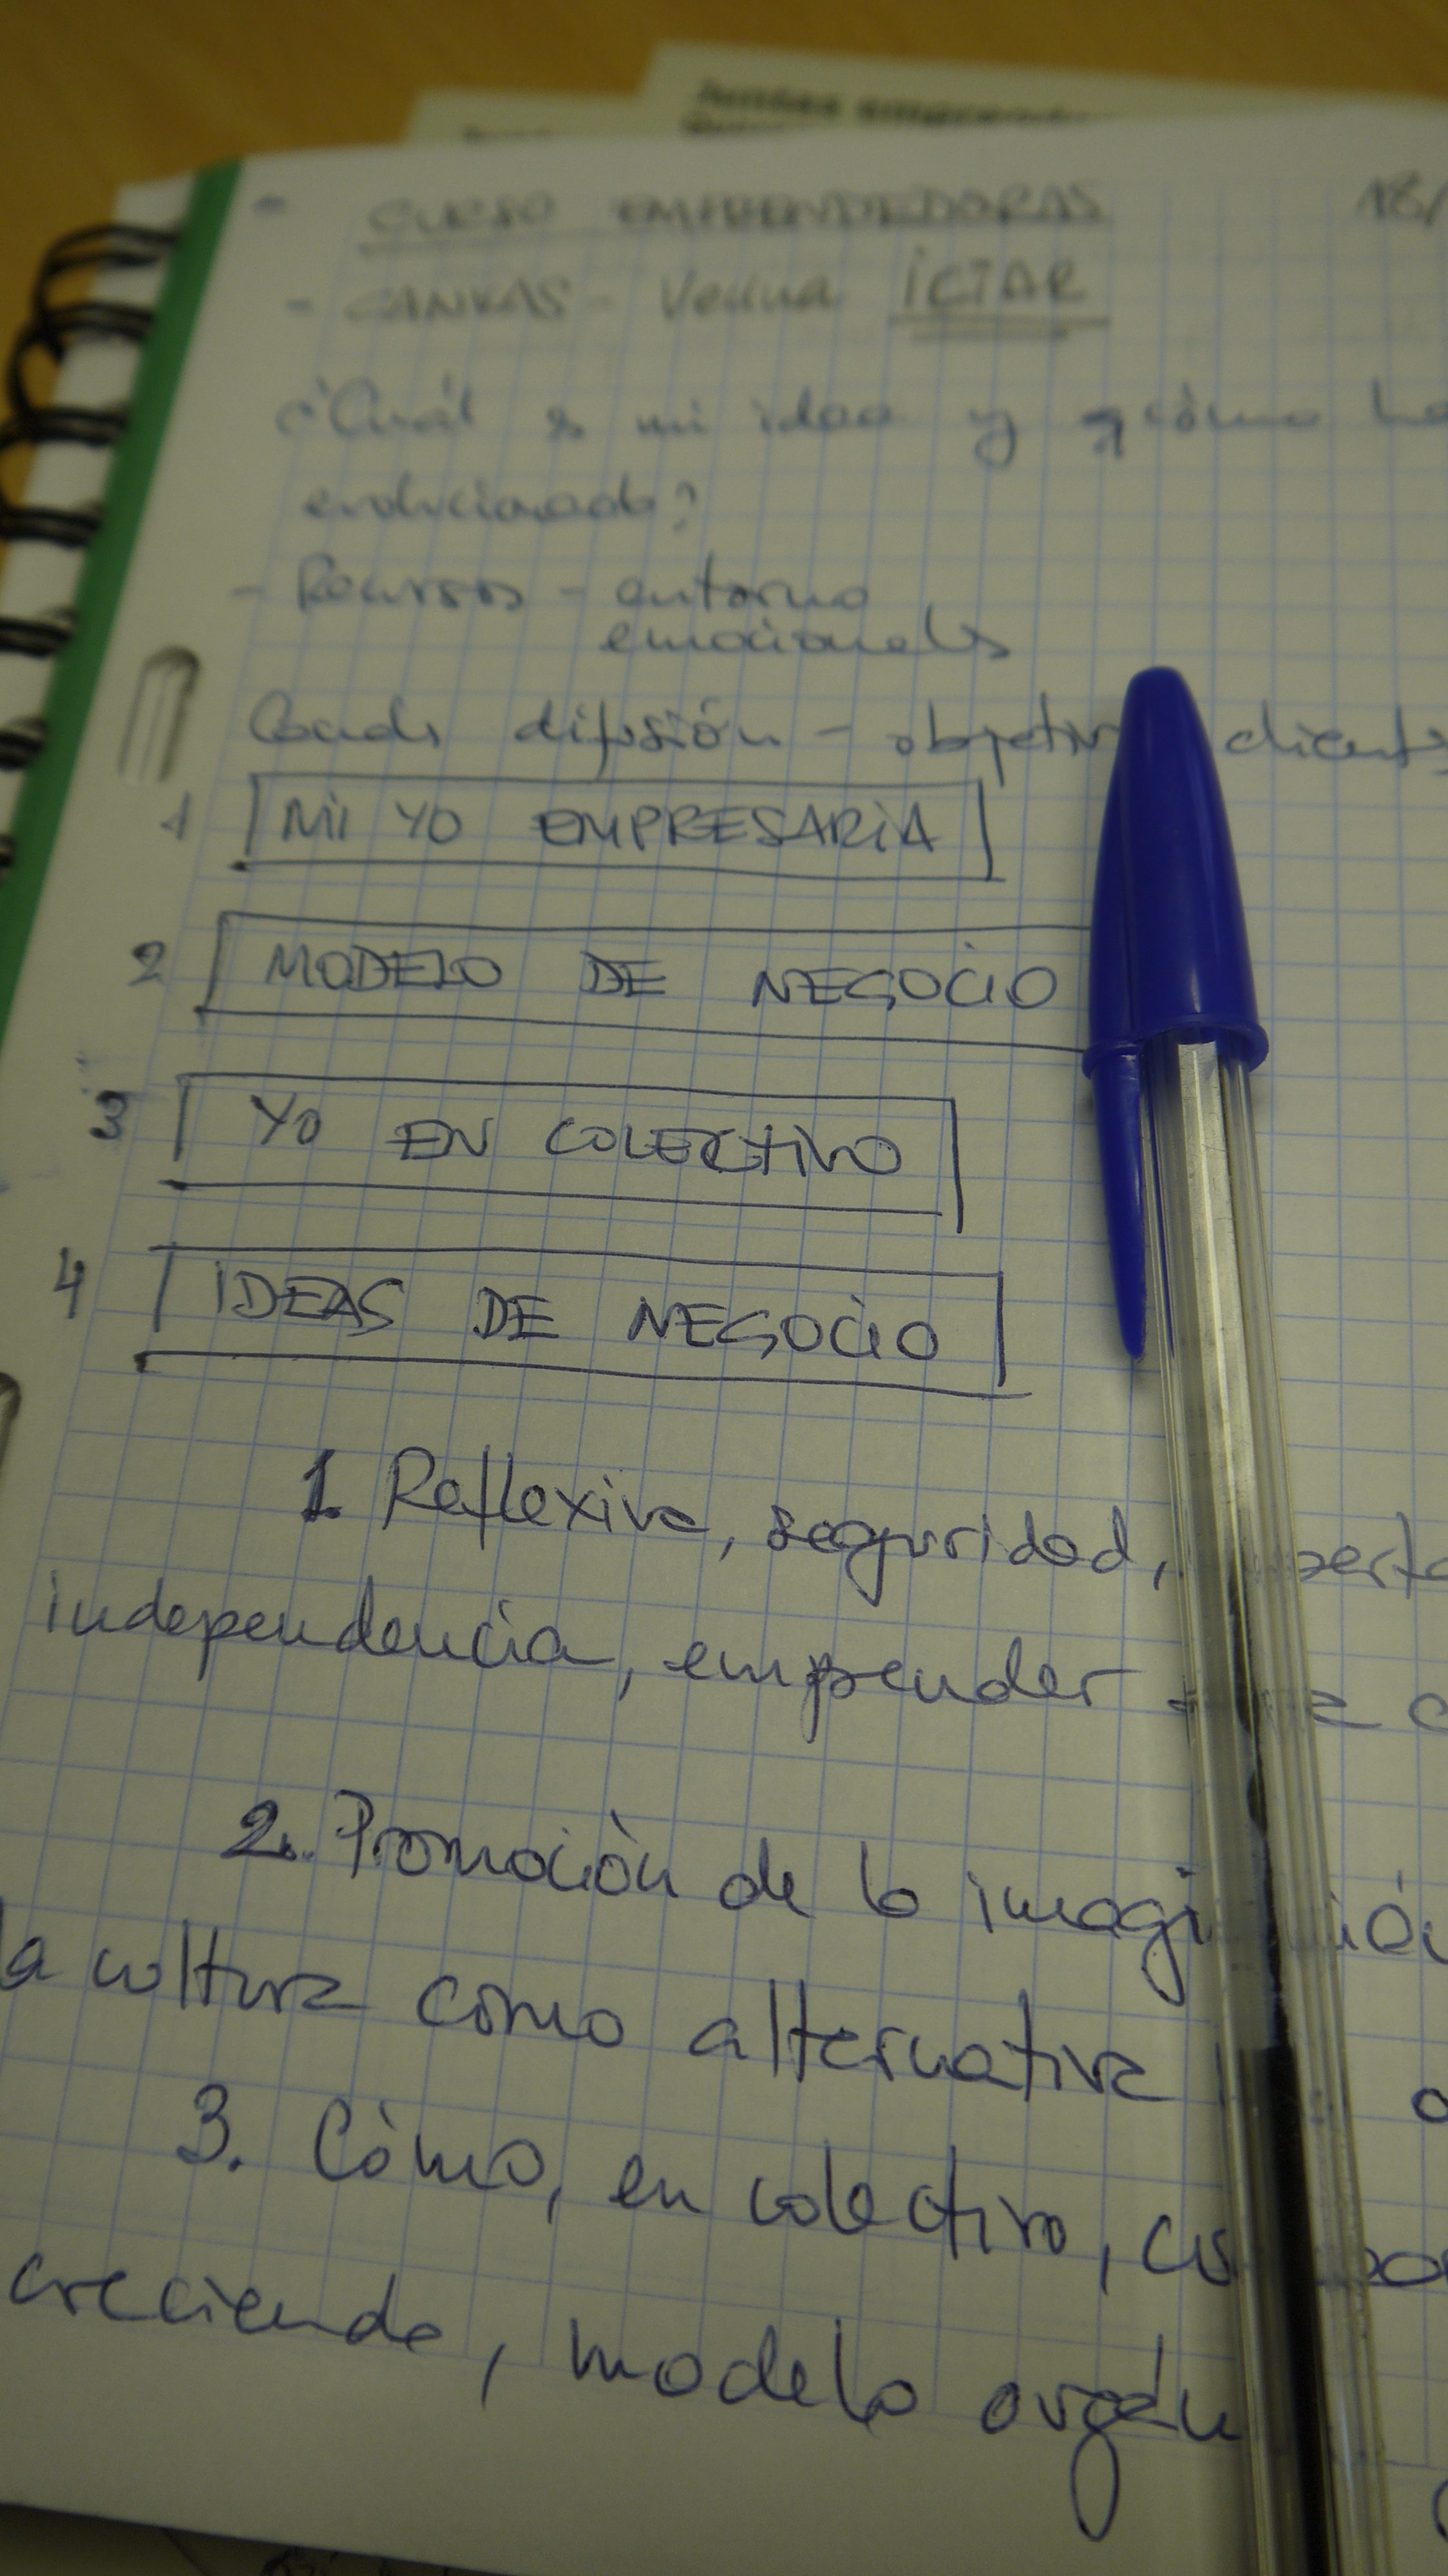 Juntas emprende
CURSO EMPRENDEDORAS 18/
- CANVAS - ICIAR
¿Cuál es mi idea y cómo ha
evolucionado?
- Recursos - entorno
emocionales
difusión - objetivo clientes
1 MI YO EMPRESARIA
2 MODELO DE NEGOCIO
3 YO EN COLECTIVO
4 IDEAS DE NEGOCIO
1. Reflexiva, seguridad,
independencia, emprender
2. Promoción de la
la cultura como alternativa
3. Cómo, en colectivo,
creciendo, modelo